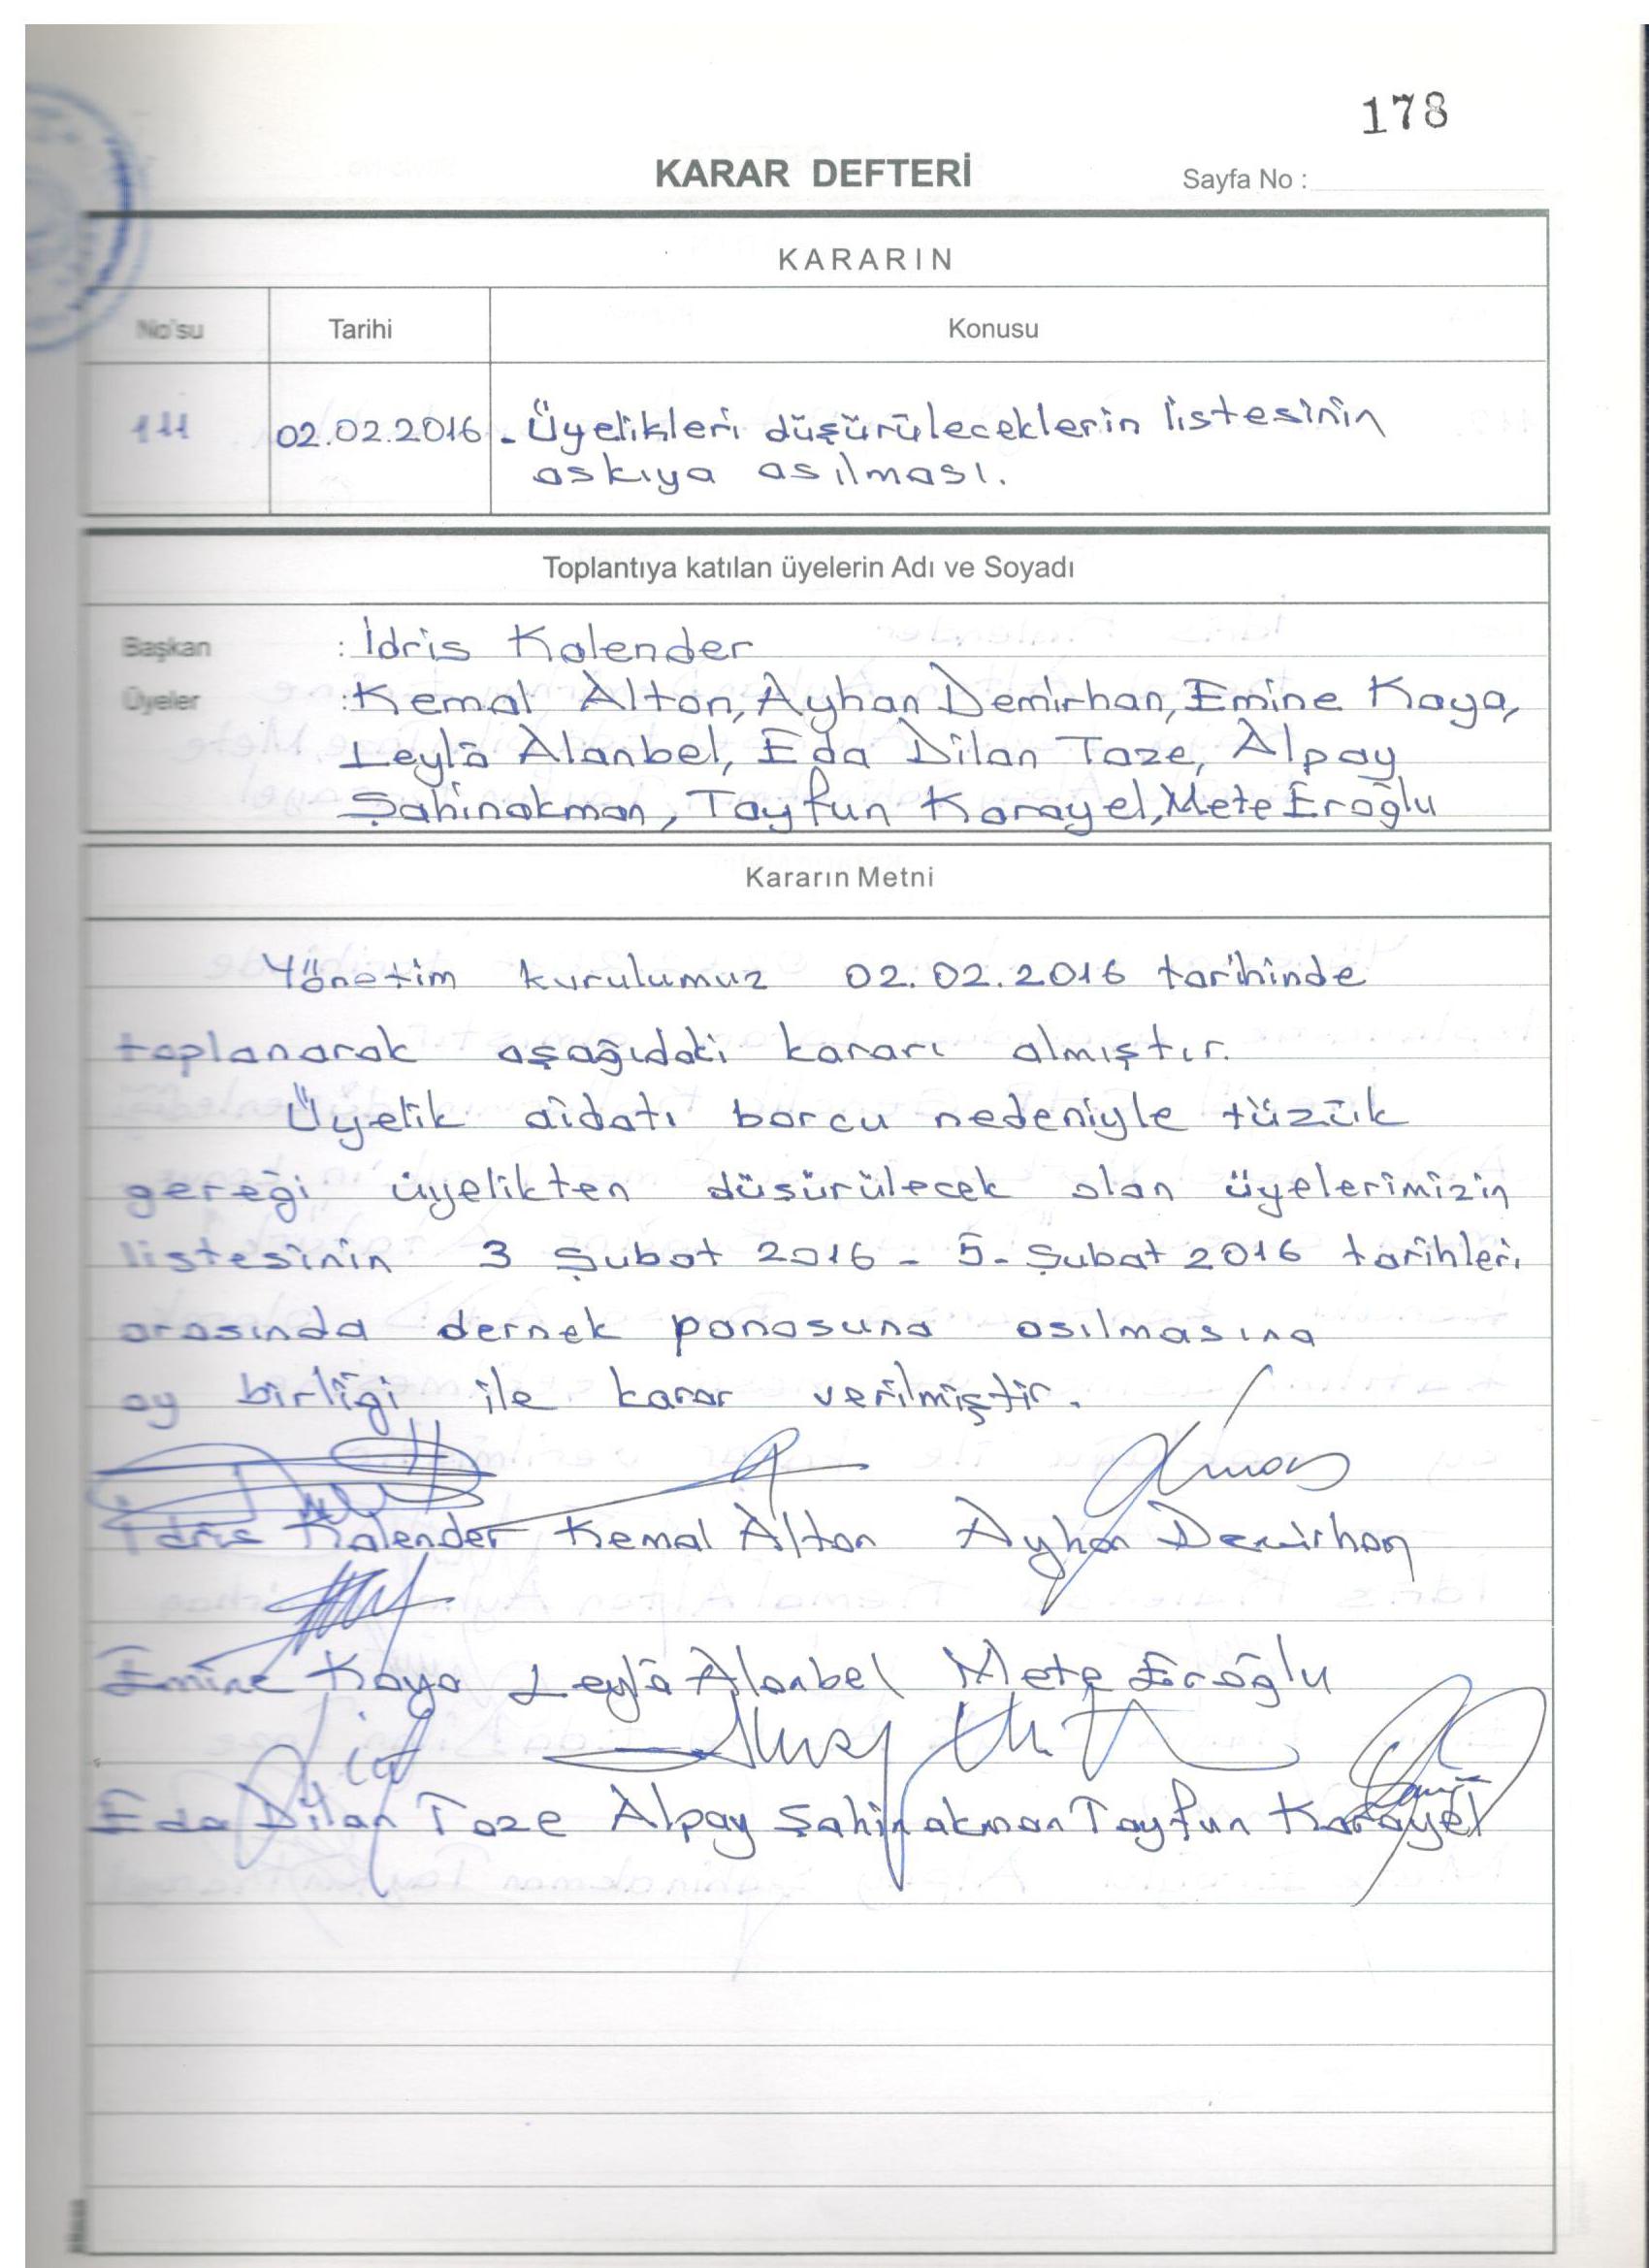 178
KARAR DEFTERİ
Sayfa No :
KARARIN
No'su Tarihi Konusu
111 02.02.2016 - Üyelikleri düşürüleceklerin listesinin
askıya asılması.
Toplantıya katılan üyelerin Adı ve Soyadı
Başkan : İdris Kalender
Üyeler : Kemal Altan, Ayhan Demirhan, Emine Kaya,
Leylâ Alanbel, Eda Dilan Taze, Alpay
Şahinakman, Tayfun Karayel, Mete Eroğlu
Kararın Metni
Yönetim kurulumuz 02.02.2016 tarihinde
toplanarak aşağıdaki kararı almıştır.
Üyelik aidatı borcu nedeniyle tüzük
gereği üyelikten düşürülecek olan üyelerimizin
listesinin 3 Şubat 2016 - 5. Şubat 2016 tarihleri
arasında dernek panosuna asılmasına
oy birliği ile karar verilmiştir.
İdris Kalender Kemal Altan Ayhan Demirhan
Emine Kaya Leylâ Alanbel Mete Eroğlu
Eda Dilan Taze Alpay Şahinakman Tayfun Karayel